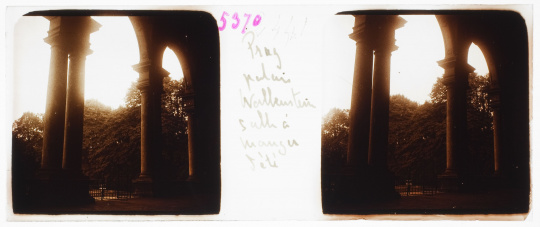 5370
Prag
palais
Wallenstein
salle à
manger
d'été